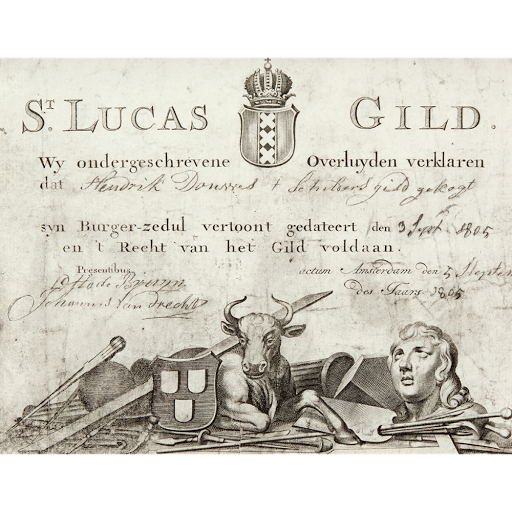 ST. LUCAS GILD.
Wy ondergeschrevene Overluyden verklaren
dat Hendrik Douwes 't Schilders gild gekogt
syn Burger-zedul vertoont gedateert den 3 Sept. 1805
en 't Recht van het Gild voldaan.
Presentibus actum Amsterdam den 5 Septem
des Jaars 1805
Johannes van Drecht